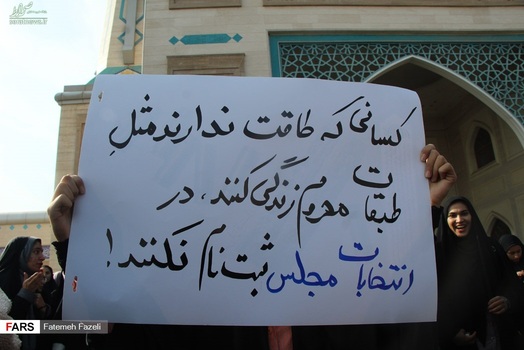 کسانی که طاقت ندارند مثلِ
طبقات محروم زندگی کنند، در
انتخابات مجلس ثبت نام نکنند!
FARS
Fatemeh Fazeli